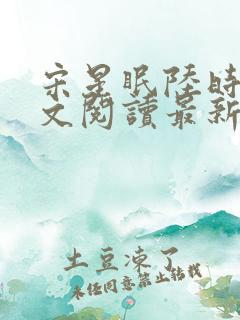 宋星眠陸時
文閱讀最新
土豆凍了
未经同意禁止转载